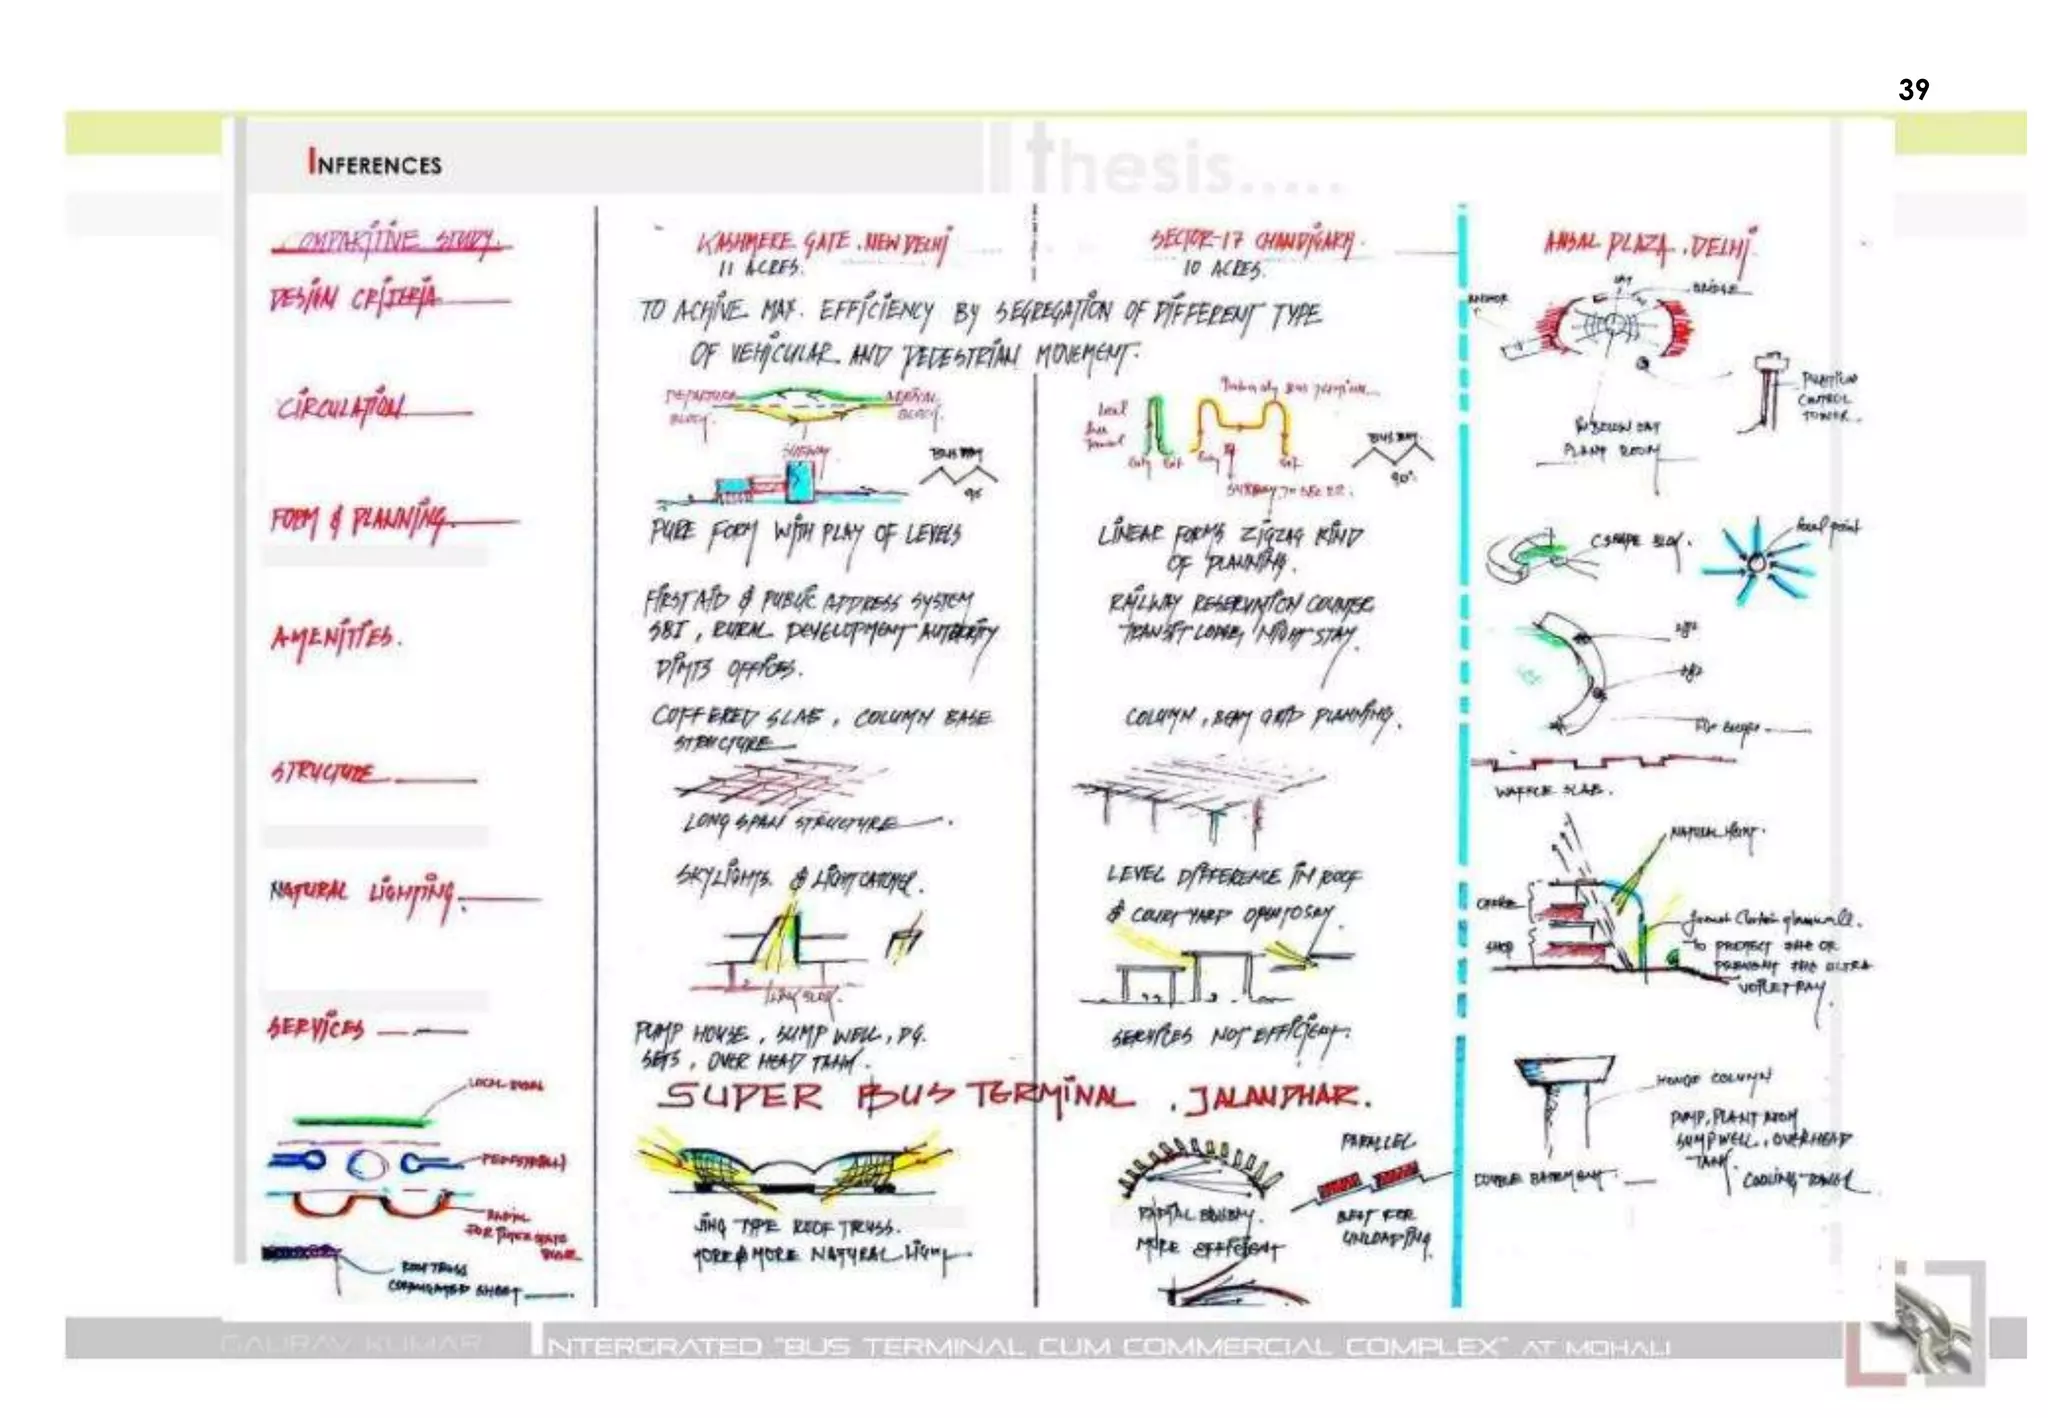 39
INFERENCES
thesis.....
COMPARITIVE STUDY.
KASHMERE GATE. NEW DELHI
11 ACRES.
SECTOR-17 CHANDIGARH.
10 ACRES.
ANSAL PLAZA. DELHI.
DESIGN CRITERIA
TO ACHIVE MAX. EFFICIENCY BY SEGREGATION OF DIFFERENT TYPE
OF VEHICULAR AND PEDESTRIAN MOVEMENT.
ANCHOR
BRIDGE
CIRCULATION
DEPARTURE
BLOCK.
ARRIVAL
BLOCK.
SUBWAY
BUS BAY
90
Local
Bus
Terminal
Entry Exit
Entry
Exit
SUBWAY TO SEC 22.
BUS BAY.
90°.
CONTROL
TOWER.
PLANT ROOM
FORM & PLANNING.
PURE FORM WITH PLAY OF LEVELS
LINEAR FORMS ZIGZAG KIND
OF PLANNING.
C SHAPE BLOCK.
focal point
AMENITIES.
FIRST AID & PUBLIC ADDRESS SYSTEM
SBI, RURAL DEVELOPMENT AUTHORITY
DIMTS OFFICES.
RAILWAY RESERVATION COUNTER
TRANSIT LODGE, NIGHT STAY.
STRUCTURE
COFFERED SLAB, COLUMN BASE
STRUCTURE
LONG SPAN STRUCTURE.
COLUMN, BEAM GRID PLANNING.
WAFFLE SLAB.
NATURAL LIGHTING.
SKYLIGHTS. & LIGHT CATCHER.
LINK BLOCK.
LEVEL DIFFERENCE IN ROOF
& COURTYARD OPEN TO SKY.
NATURAL LIGHT.
OFFICE
SHOP
TO PROTECT THE OR
PREVENT THE ULTRA
VOILET RAY
SERVICES
PUMP HOUSE, SUMP WELL, DG.
SETS, OVER HEAD TANK.
SERVICES NOT EFFICIENT.
HOLLOW COLUMN
PUMP, PLANT ROOM
SUMPWELL, OVERHEAD
TANK.
COOLING TOWER
DOUBLE BASEMENT.
SUPER BUS TERMINAL. JALANDHAR.
LOCAL
PEDESTRIAN
RADIAL
FOR INTER STATE
ROOF TRUSS
CORRUGATED SHEET
WING TYPE ROOF TRUSS.
MORE & MORE NATURAL LIGHT
RADIAL BUSBAY.
MORE EFFICIENT
PARALLEL
BEST FOR
UNLOADING
GAURAV KUMAR
INTERGRATED "BUS TERMINAL CUM COMMERCIAL COMPLEX" AT MOHALI